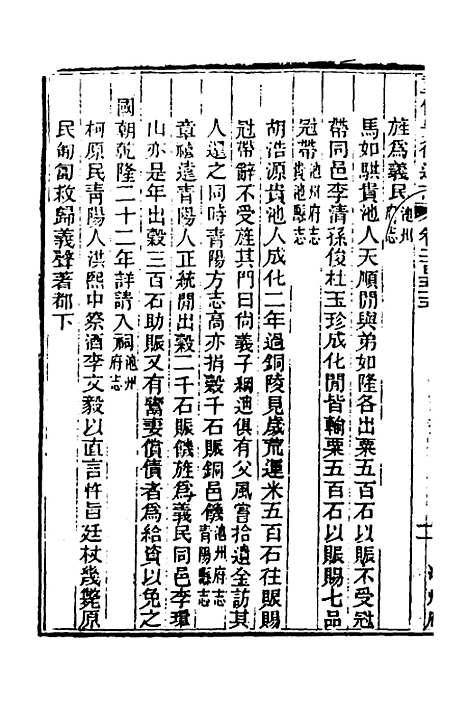 旌爲義民池州府志
馬如騏貴池人天順閒與弟如隆各出粟五百石以賑不受冠
帶同邑李清孫俊杜玉珍成化閒皆輸粟五百石以賑賜七品
冠帶池州府志貴池縣志
胡浩源貴池人成化二年過銅陵見歲荒運米五百石往賑賜
冠帶辭不受旌其門曰尙義子綱迪俱有父風嘗拾遺金訪其
人還之同時青陽方志高亦捐穀千石賑銅邑饑池州府志青陽縣志
章禎達青陽人正統閒出穀二千石賑饑旌爲義民同邑李瓊
山亦是年出穀三百石助賑又有鬻妻償債者爲給資以免之
國朝乾隆二十二年詳請入祠池州府志
柯原民青陽人洪熙中祭酒李文毅以直言忤旨廷杖幾斃原
民匍匐救歸義聲著都下